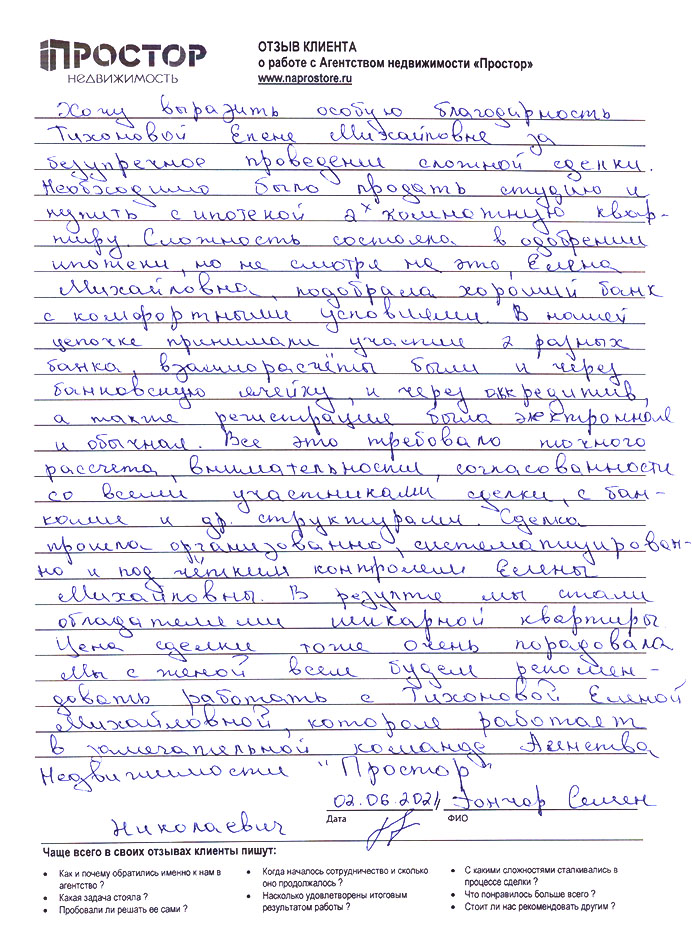 ПРОСТОР
НЕДВИЖИМОСТЬ
ОТЗЫВ КЛИЕНТА
о работе с Агентством недвижимости «Простор»
www.naprostore.ru
Хочу выразить особую благодарность
Тихоновой Елене Михайловне за
безупречное проведение сложной сделки.
Необходимо было продать студию и
купить с ипотекой 2х комнатную квар-
тиру. Сложность состояла в одобрении
ипотеки, но не смотря на это, Елена
Михайловна, подобрала хороший банк
с комфортными условиями. В нашей
цепочке принимали участие 2 разных
банка, взаиморасчёты были и через
банковскую ячейку, и через аккредитив,
а также регистрация была электронная
и обычная. Все это требовало точного
рассчета, внимательности, согласованности
со всеми участниками сделки, с бан-
ками и др. структурами Сделка
прошла организованно, систематизирован-
но и под чётким контролем Елены
Михайловны. В результе мы стали
обладателями шикарной квартиры
Цена сделки тоже очень порадовала
Мы с женой всем будем рекомен-
довать работать с Тихоновой Еленой
Михайловной, которая работает
в замечательной команде Агенства
Недвижимости "Простор"
02.06.2021, Гончар Семен
Дата ФИО
Николаевич
Чаще всего в своих отзывах клиенты пишут:
• Как и почему обратились именно к нам в
агентство ?
• Какая задача стояла ?
• Пробовали ли решать ее сами ?
• Когда началось сотрудничество и сколько
оно продолжалось ?
• Насколько удовлетворены итоговым
результатом работы ?
• С какими сложностями сталкивались в
процессе сделки ?
• Что понравилось больше всего ?
• Стоит ли нас рекомендовать другим ?